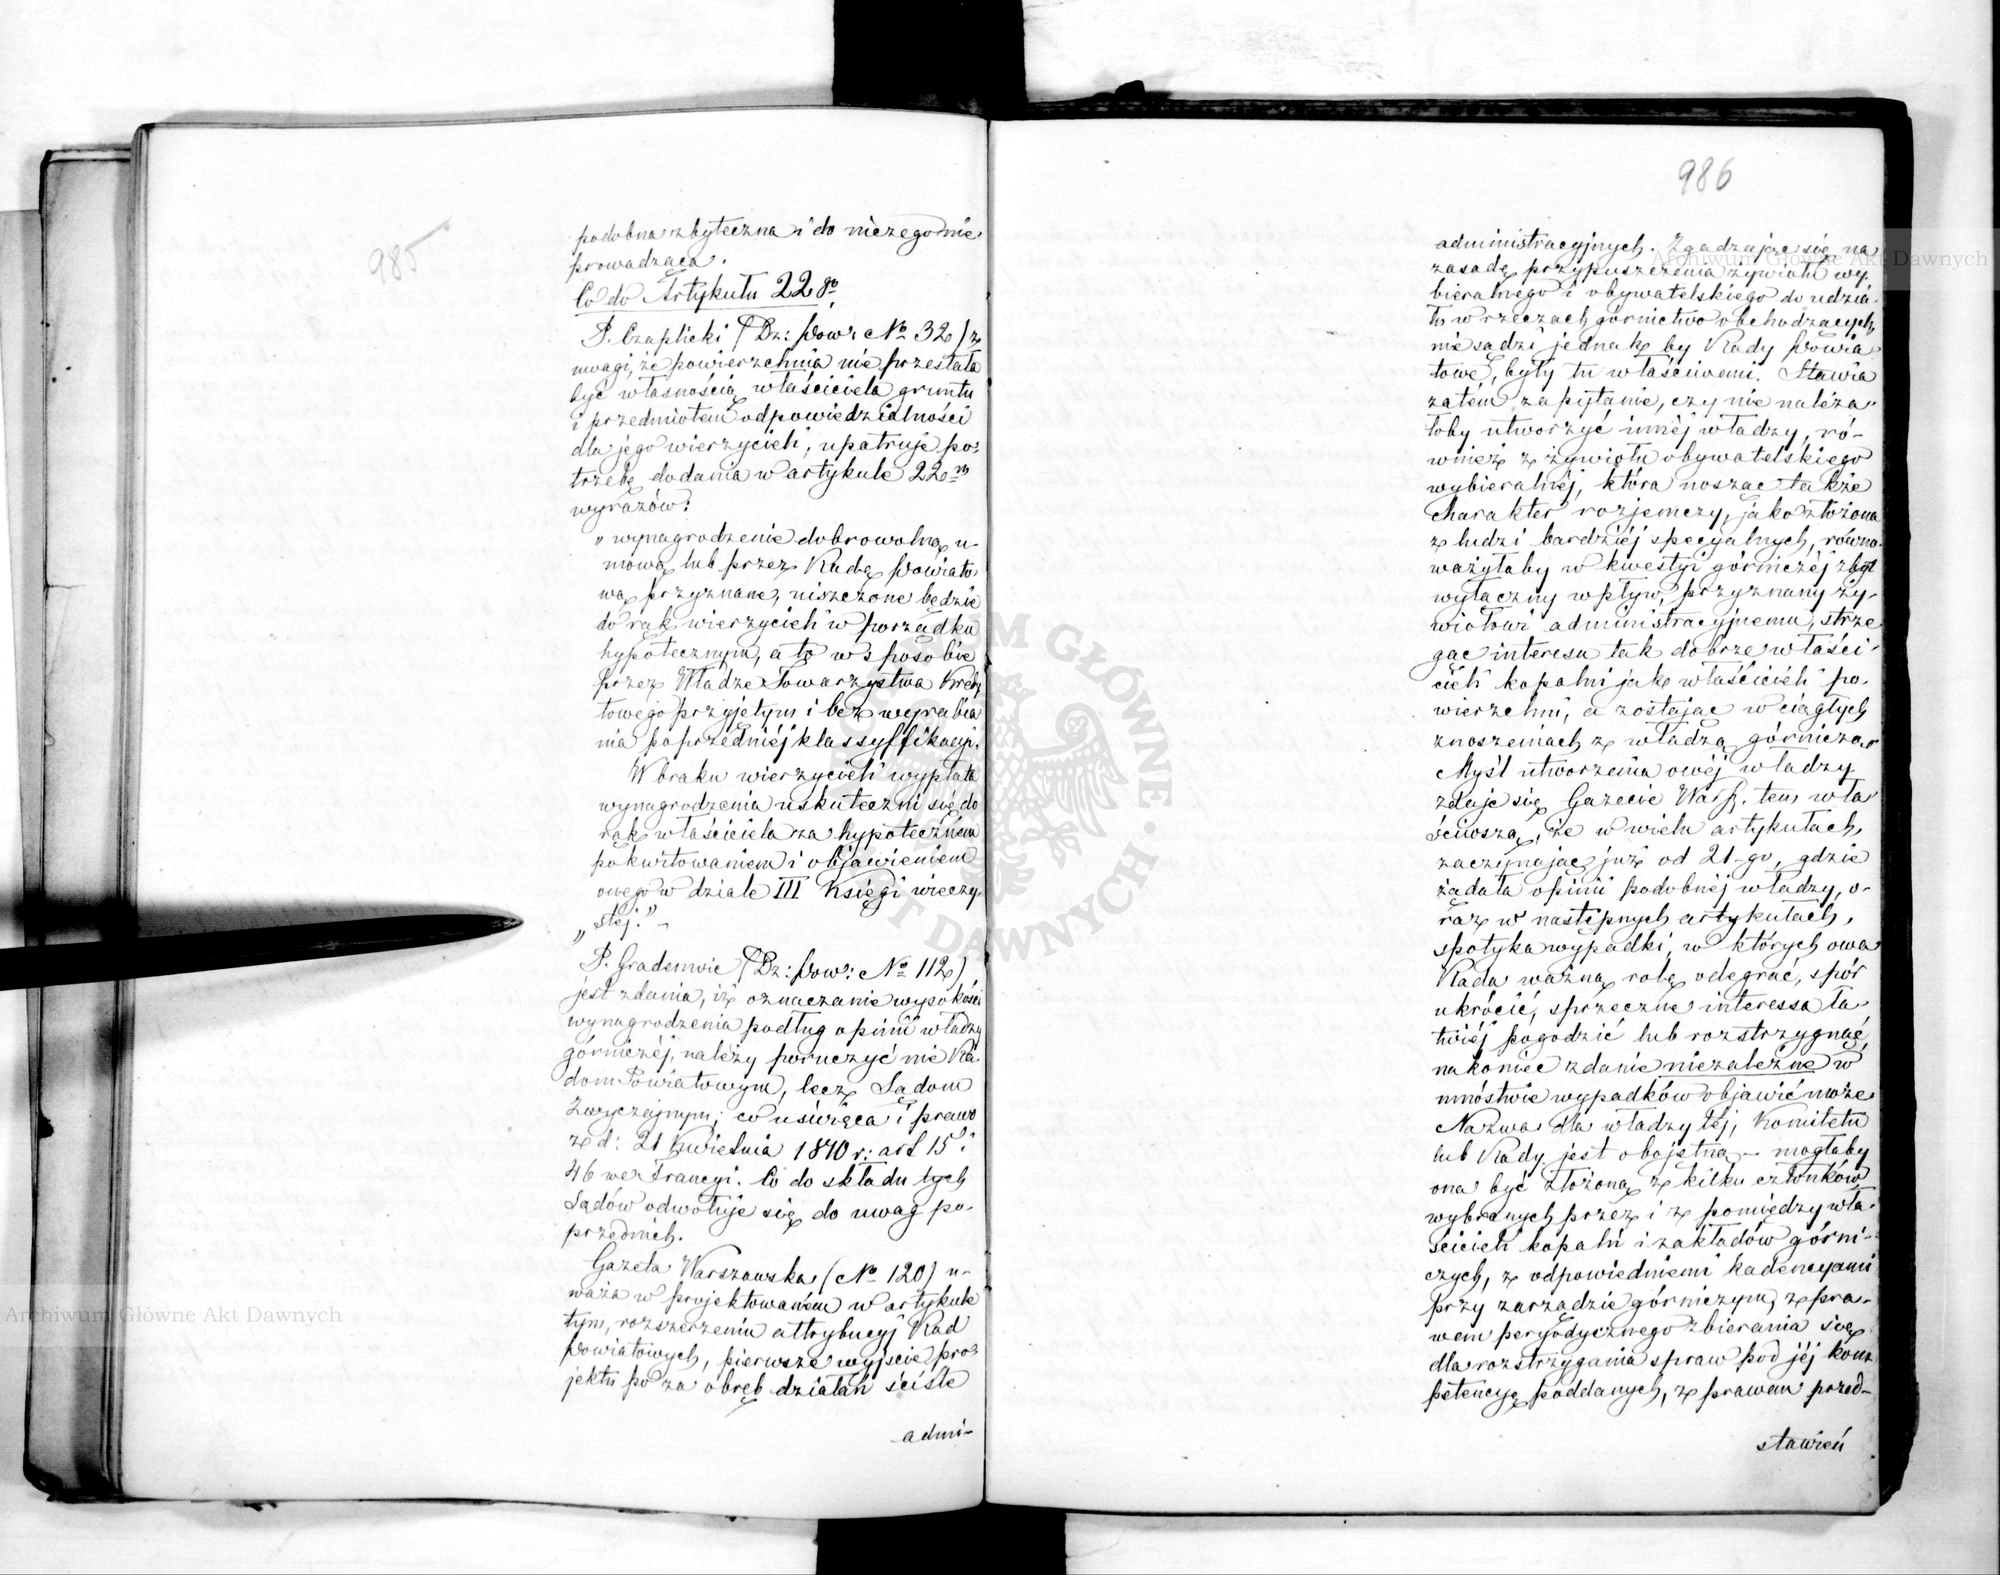 985
podobna zbyteczna i do niczego nie
prowadząca.
Co do Artykułu 22 go
P. Czaplicki (Dz: Pow: No 32) z
uwagi, że powierzchnia nie przestała
być własnością właściciela gruntu
i przedmiotem odpowiedzialności
dla jego wierzycieli, upatruje po-
trzebę dodania w artykule 22m
wyrazów:
„wynagrodzenie dobrowolną u-
mową lub przez Radę Powiato-
wą przyznane, uiszczone będzie
do rąk wierzycieli w porządku
hypotecznym, a to w sposobie
przez Władze Towarzystwa Kredy
towego przyjętym i bez wyrabia
nia poprzedniéj klassyffikacyi.
W braku wierzycieli wypłata
wynagrodzenia uskuteczni się do
rąk właściciela za hypoteczném
pokwitowaniem i objawieniem
owego w dziale III Księgi wieczy-
„stej." –
P. Grademvic (Dz: Pow: No 112)
jest zdania, iż oznaczanie wysokości
wynagrodzenia podług opinii władzy
górniczéj, należy poruczyć nie Ra-
dom Powiatowym, lecz Sądom
Zwyczajnym; co uświęca i prawo
z d: 21 Kwietnia 1810 r: art 15 i
46 we Francyi. Co do składu tych
Sądów odwołuje się do uwag po-
przednich.
Gazeta Warszawska (No 120) u-
waża w projektowaném w artykule
tym, rozszerzeniu attrybucyj Rad
Powiatowych, pierwsze wyjście pro-
jektu po za obręb działań ściśle
admi-
986
administracyjnych. Zgadzając się na
zasadę przypuszczenia żywiołu wy-
bieralnego i obywatelskiego do udzia-
łu w rzeczach górnictwo obchodzących,
nie sądzi jednak by Rady Powia-
towe, były tu właściwemi. Stawia
zatém zapytanie, czy nie należa-
łoby utworzyć innéj władzy, ró-
wnież z żywiołu obywatelskiego
wybieralnéj, która nosząc także
charakter rozjemczy, jako złożona
z ludzi bardziéj specyalnych, równo-
ważyłaby w kwestyi górniczéj zbyt
wyłączny wpływ, przyznany ży-
wiołowi administracyjnemu, strze
gąc interesu tak dobrze właści-
cieli kopalni jak właścicieli po-
wierzchni, a zostając w ciągłych
znoszeniach z władzą górniczą.
Myśl utworzenia owéj władzy
zdaje się Gazecie Warsz. tem wła
ściwszą, że w wielu artykułach,
zaczynając już od 21-go, gdzie
żądała opinii podobnéj władzy, o-
raz w następnych artykułach,
spotyka wypadki, w których owa
Rada ważną rolę odegrać, spór
ukrócić, sprzeczne interessa ła-
twiéj pogodzić lub rozstrzygnąć,
nakoniec zdanie niezależne w
mnóstwie wypadków objawić może
Nazwa dla władzy téj, Komitetu
lub Rady jest obojętną – mogłaby
ona być złożoną z kilku członków
wybranych przez i z pomiędzy wła-
ścicieli kopalń i zakładów górni-
czych, z odpowiedniemi kadencyami
przy zarządzie górniczym, z pra-
wem peryodycznego zbierania się
dla rozstrzygania spraw pod jéj kom
petencyę poddanych, z prawem przed-
stawień
Archiwum Główne Akt Dawnych
Archiwum Główne Akt Dawnych